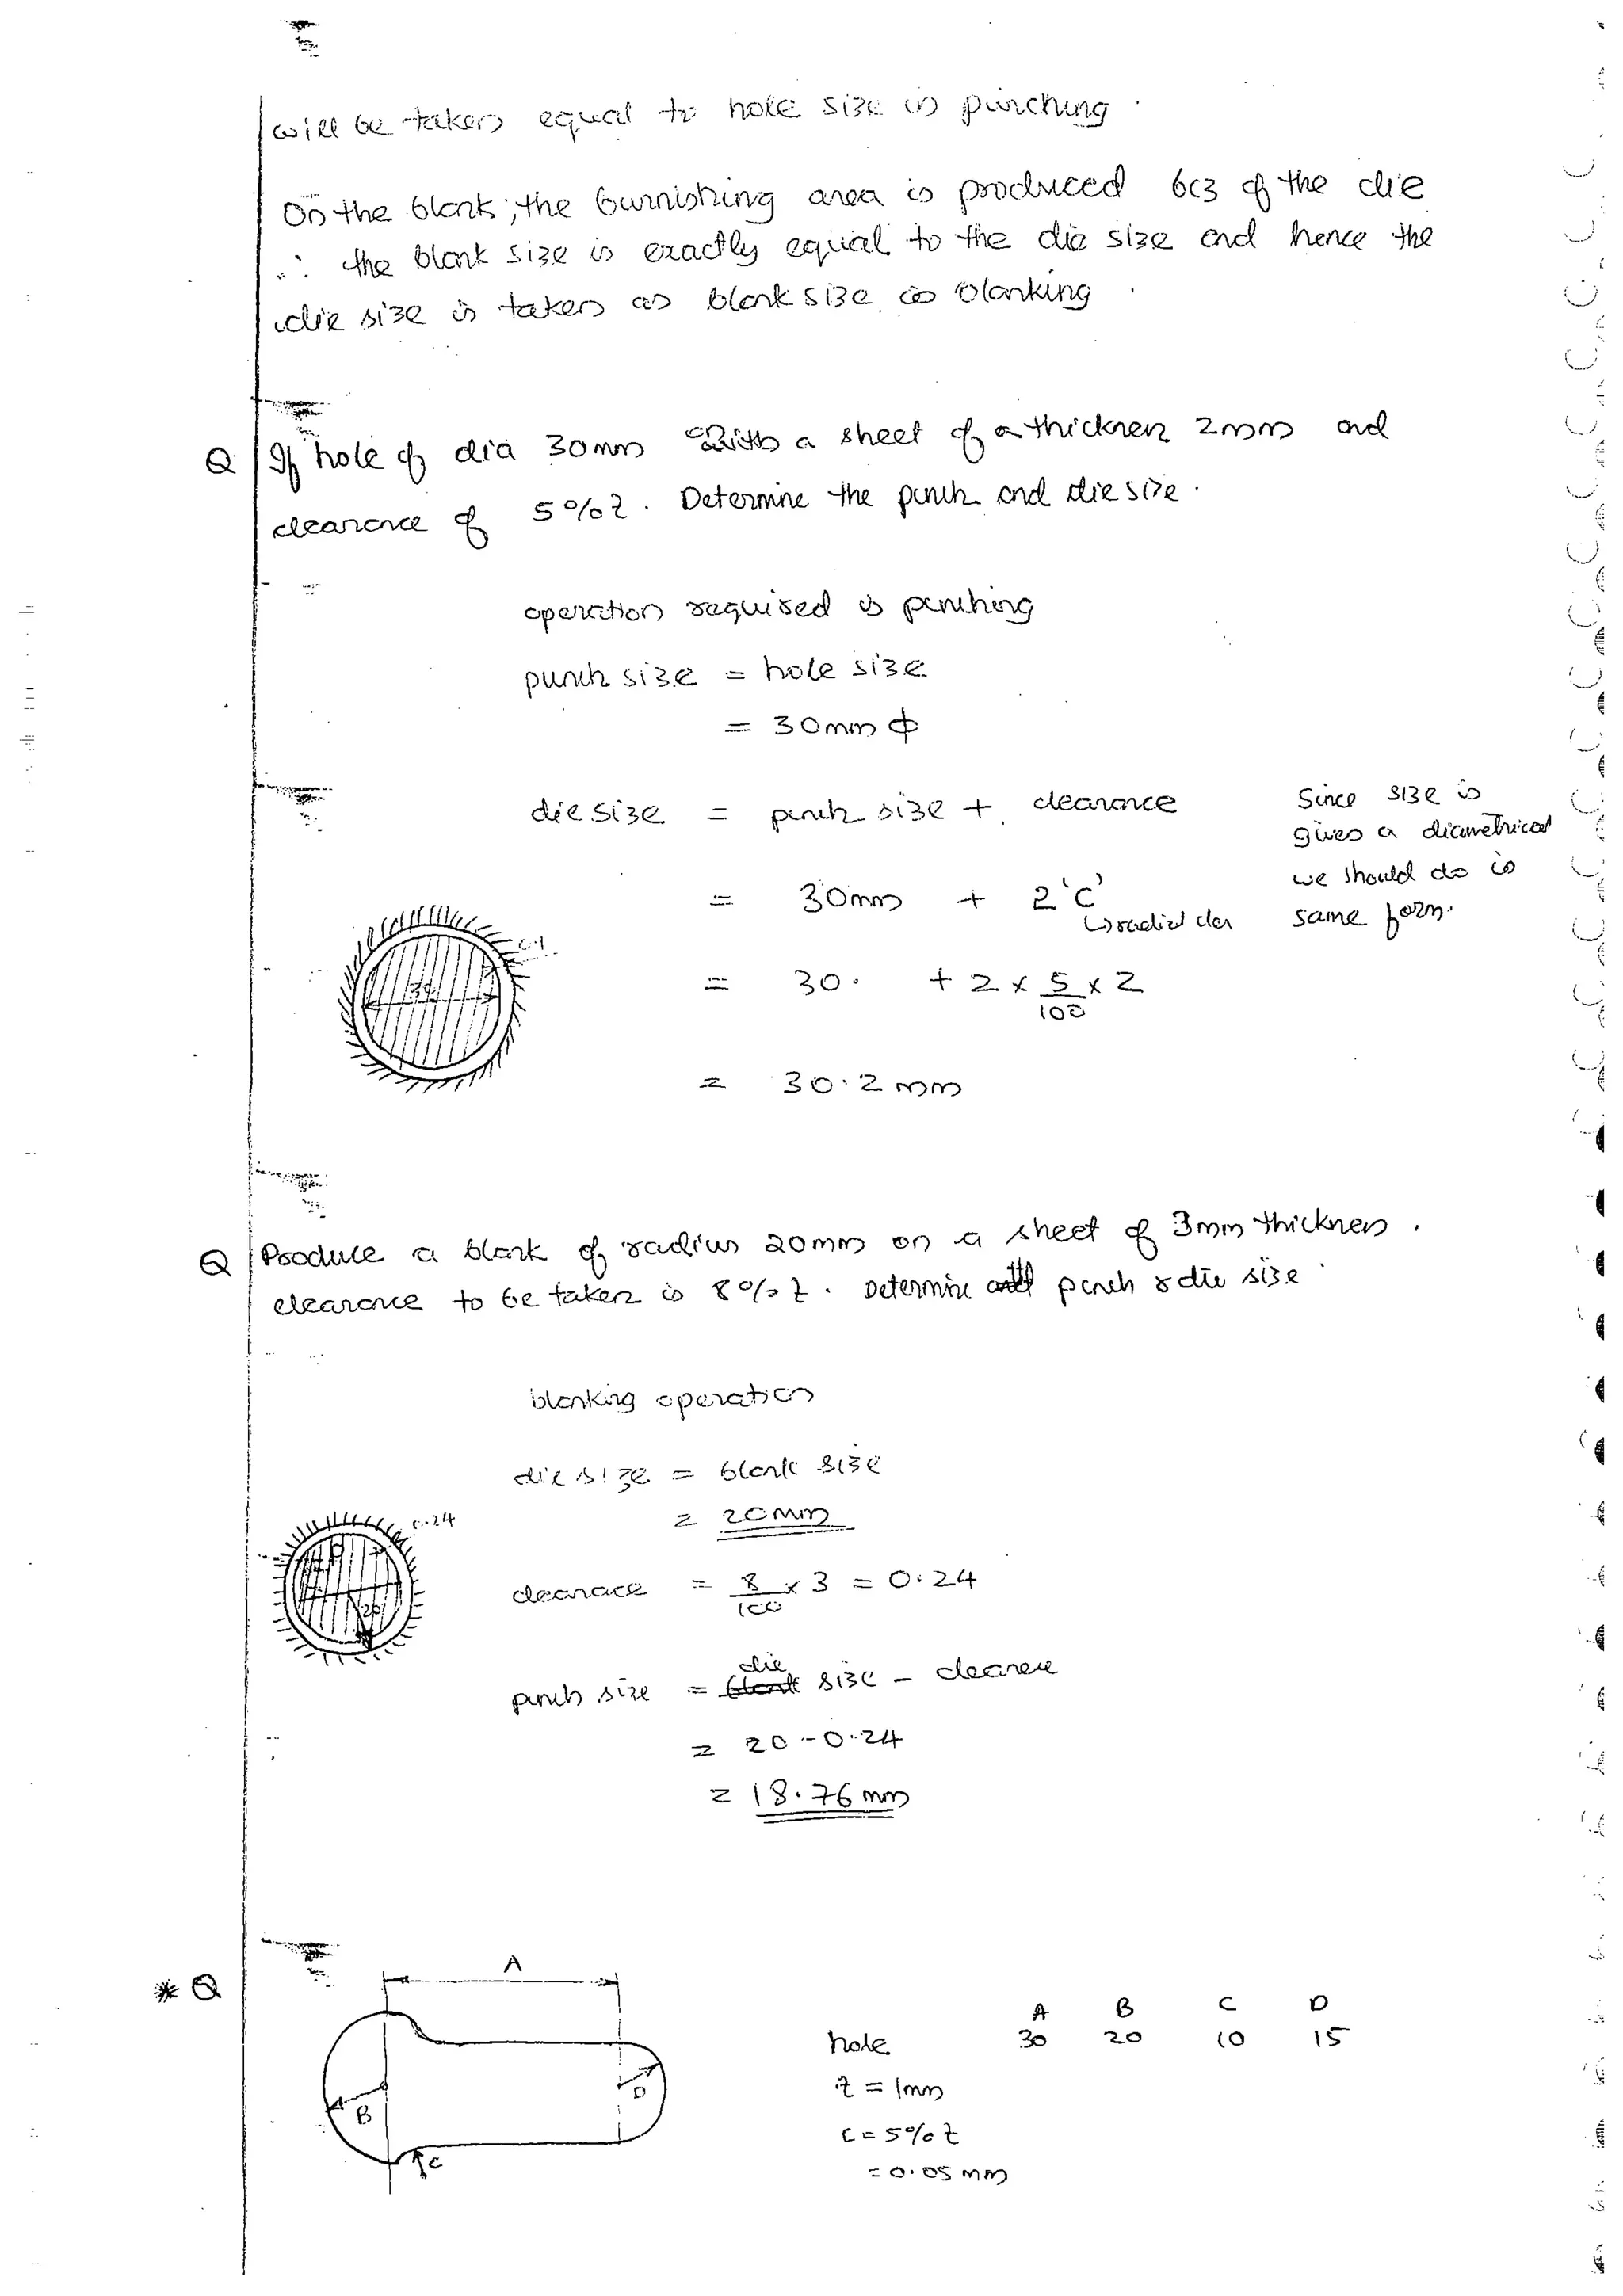 will be taken equal to hole size in punching.
On the blank, the burnishing area is produced bcz of the die
∴ the blank size is exactly equal to the die size and hence the
die size is taken as blank size in blanking.
Q If hole of dia 30mm with a sheet of a thickness 2mm and
clearance of 5%t. Determine the punch and die size.
operation required is punching
punch size = hole size
= 30mm ϕ
die size = punch size + clearance
Since size is
given a diametrical
we should do in
same form.
= 30mm + 2'C'
↳radial clar
= 30. + 2 x 5/100 x 2
= 30.2 mm
0.1
30
Q Produce a blank of radius 20mm on a sheet of 3mm thickness.
clearance to be taken is 8%t. Determine punch & die size.
blanking operation
die size = blank size
= 20mm
0.24
20
clearace = 8/100 x 3 = 0.24
punch size = die size - clearence
= 20-0.24
= 18.76mm
* Q
A
B
C
D
A B C D
hole 30 20 10 15
t = 1mm
C = 5%t
= 0.05 mm